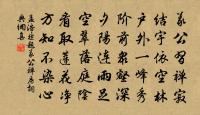 義公習禪寂
結宇依空林
户外一峰秀
階前衆壑深
夕陽連雨足
空翠落庭陰
看取蓮花淨
方知不染心
孟浩然題義公禪房